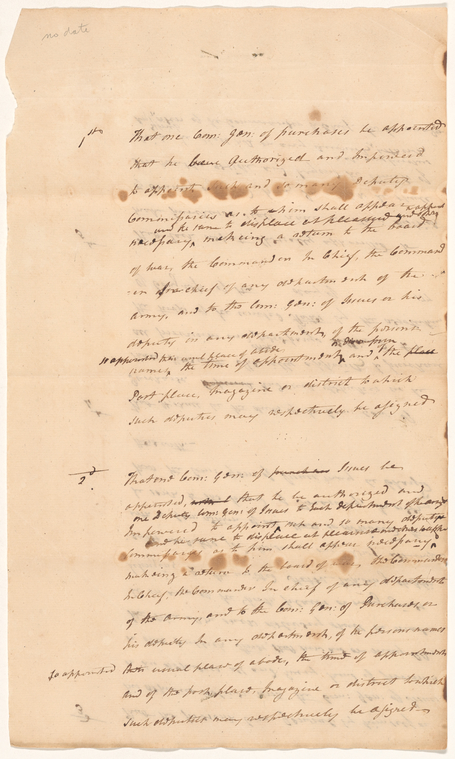 no date
1st That one Com: Gen: of purchases be appointed
that he be Authorized and Impowered
to appoint such and so many deputy
Commissaries as to him shall appear
and the same to displace at pleasure and
necessary, making a return to the board
of war, the Commander In Chief, the Command
in chief of any department of the
army, and to the Com: Gen: of Issues or his
deputy in any department, of the persons
so appointed usual place of abode
names, the time of appointment, and the place
Post place, magazine or district to which
such deputies may respectively be asigned
2d That one Com: Gen: of purchases Issues be
appointed, that he be authorized and
one Deputy Com: Gen: of Issues to Each department of the army
Impowered to appoint such and so many deputy
same to displace at pleasure
Commissaries as to him shall appear necessary
making a return to the board of war, the Commander
In Chief, the Commander In chief of any department
of the Army, and to the Com: Gen: of Purchases, or
his deputy In any department, of the persons names
so appointed their usual place of abode, the time of appointment
and of the post, place, magazine or district to which
such deputies may respectively be asigned